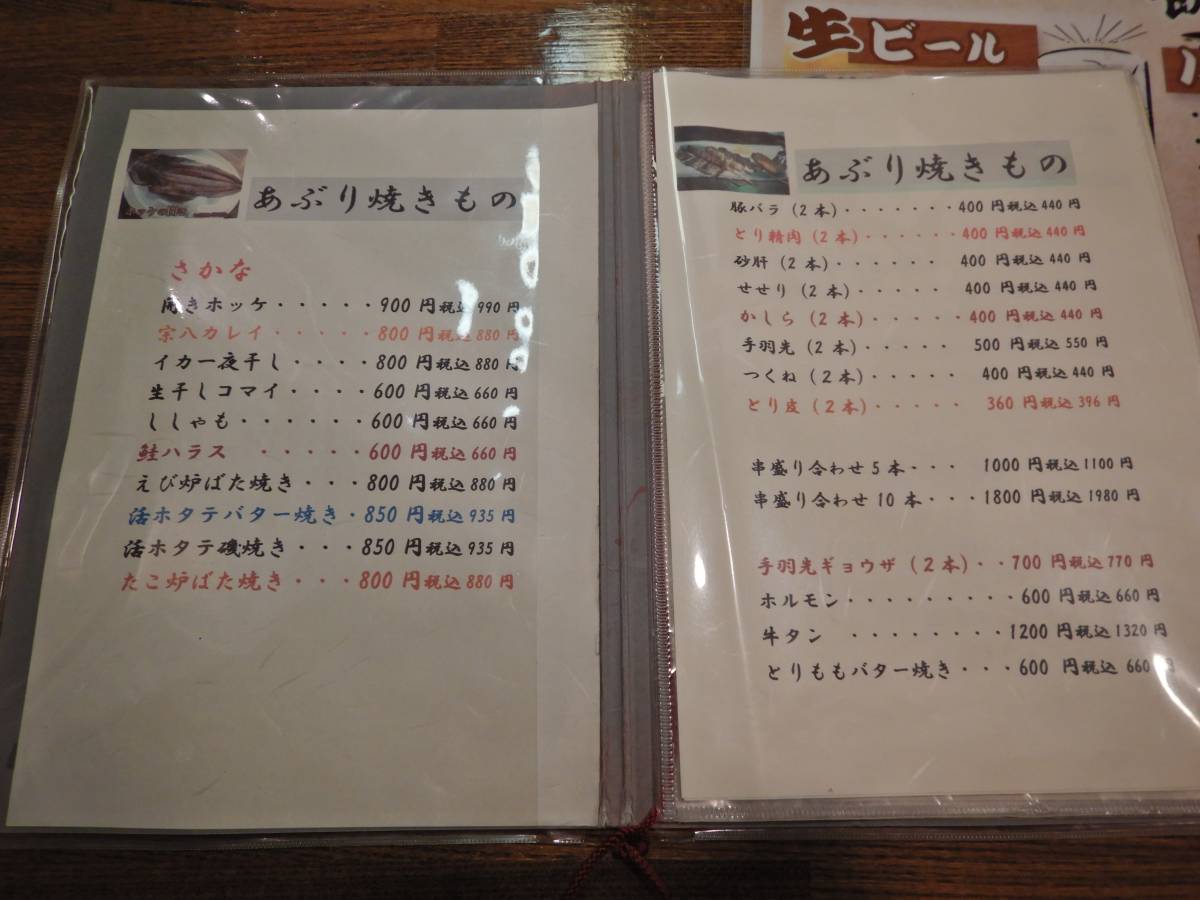 生ビール
あぶり焼きもの
さかな
開きホッケ・・・・・900円税込990円
宗八カレイ・・・・・800円税込880円
イカ一夜干し・・・・800円税込880円
生干しコマイ・・・・600円税込660円
ししゃも・・・・・・600円税込660円
鮭ハラス ・・・・・600円税込660円
えび炉ばた焼き・・・800円税込880円
活ホタテバター焼き・850円税込935円
活ホタテ磯焼き・・・850円税込935円
たこ炉ばた焼き・・・800円税込880円
あぶり焼きもの
豚バラ(2本)・・・・・・・400円税込440円
とり精肉(2本)・・・・・・400円税込440円
砂肝(2本)・・・・・・ 400円税込440円
せせり(2本)・・・・・・ 400円税込440円
かしら(2本)・・・・・・400円税込440円
手羽先(2本)・・・・・・ 500円税込550円
つくね(2本)・・・・・・ 400円税込440円
とり皮(2本)・・・・・・ 360円税込396円
串盛り合わせ5本・・・ 1000円税込1100円
串盛り合わせ10本・・・1800円税込1980円
手羽先ギョウザ(2本)・・700円税込770円
ホルモン・・・・・・・・・・600円税込660円
牛タン ・・・・・・・・1200円税込1320円
とりももバター焼き・・・600 円税込660円